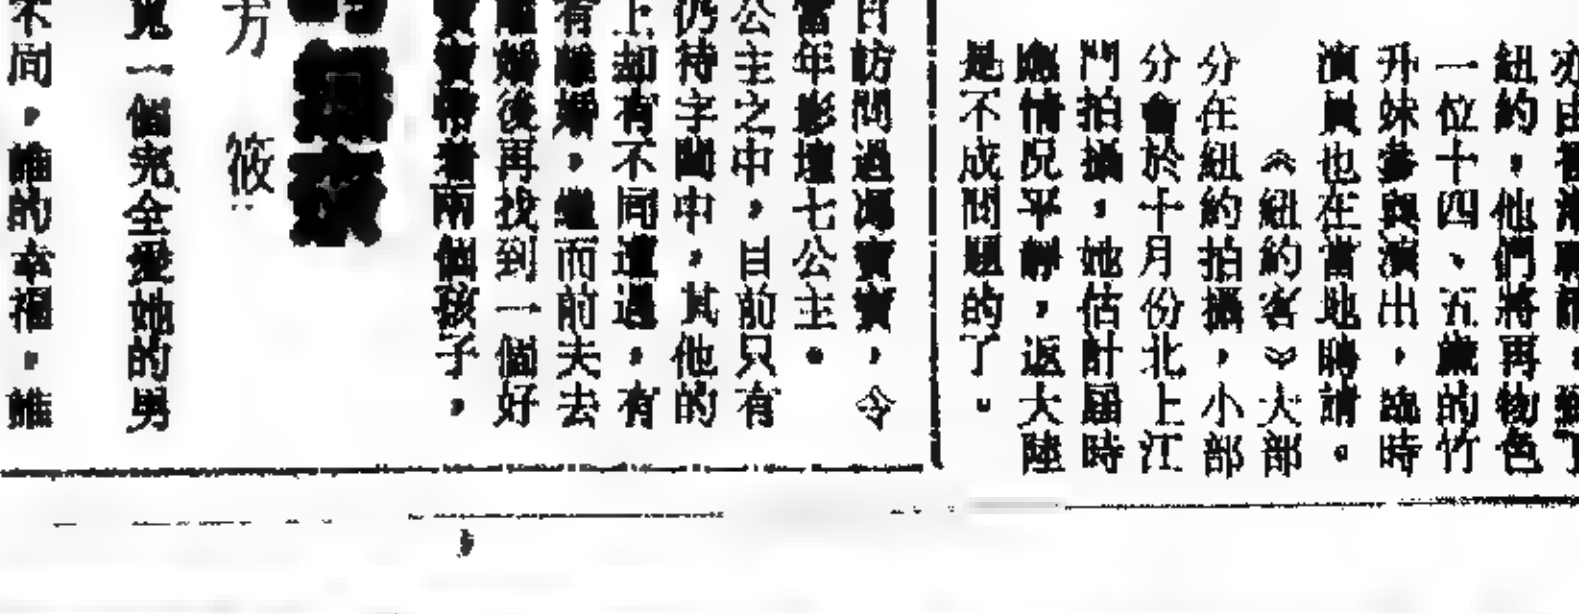 紐約，他們將再物色
一位十四、五歲的竹
升妹參與演出，此時
演員也在當地聘請。
《紐約客》大部
分在紐約拍攝，小部
分會於十月份北上江
門拍攝，她估計屆時
應情況平靜，返大陸
是不成問題的了。
日訪問過馮寶寶，令
當年影壇七公主。
公主之中，目前只有
仍待字閨中，其他的
上却有不同遭遇，有
有離婚，繼而前夫去
離婚後再找到一個好
寶寶帶着兩個孩子，
方　筱
一個完全愛她的男
不同，誰的幸福，誰